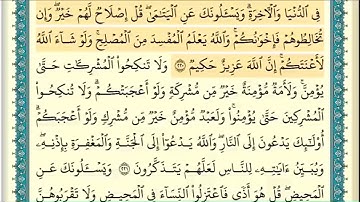 فِى ٱلدُّنْيَا وَٱلْـَٔاخِرَةِ ۗ وَيَسْـَٔلُونَكَ عَنِ ٱلْيَتَـٰمَىٰ ۖ قُلْ إِصْلَاحٌ لَّهُمْ خَيْرٌ ۖ وَإِن
تُخَالِطُوهُمْ فَإِخْوَٰنُكُمْ ۚ وَٱللَّهُ يَعْلَمُ ٱلْمُفْسِدَ مِنَ ٱلْمُصْلِحِ ۚ وَلَوْ شَآءَ ٱللَّهُ
لَأَعْنَتَكُمْ ۚ إِنَّ ٱللَّهَ عَزِيزٌ حَكِيمٌ ﴿٢٢٠﴾ وَلَا تَنكِحُوا۟ ٱلْمُشْرِكَـٰتِ حَتَّىٰ
يُؤْمِنَّ ۚ وَلَأَمَةٌ مُّؤْمِنَةٌ خَيْرٌ مِّن مُّشْرِكَةٍ وَلَوْ أَعْجَبَتْكُمْ ۗ وَلَا تُنكِحُوا۟
ٱلْمُشْرِكِينَ حَتَّىٰ يُؤْمِنُوا۟ ۚ وَلَعَبْدٌ مُّؤْمِنٌ خَيْرٌ مِّن مُّشْرِكٍ وَلَوْ أَعْجَبَكُمْ ۗ
أُو۟لَـٰٓئِكَ يَدْعُونَ إِلَى ٱلنَّارِ ۖ وَٱللَّهُ يَدْعُوٓا۟ إِلَى ٱلْجَنَّةِ وَٱلْمَغْفِرَةِ بِإِذْنِهِۦ ۖ
وَيُبَيِّنُ ءَايَـٰتِهِۦ لِلنَّاسِ لَعَلَّهُمْ يَتَذَكَّرُونَ ﴿٢٢١﴾ وَيَسْـَٔلُونَكَ عَنِ
ٱلْمَحِيضِ ۖ قُلْ هُوَ أَذًى فَٱعْتَزِلُوا۟ ٱلنِّسَآءَ فِى ٱلْمَحِيضِ ۖ وَلَا تَقْرَبُوهُنَّ